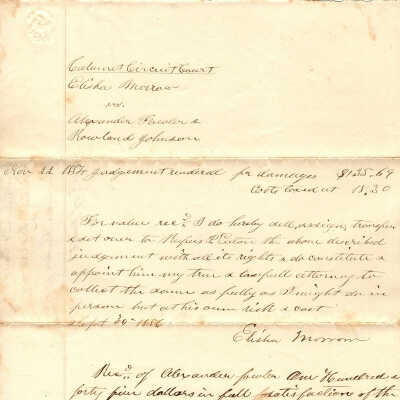 Calumet Circuit Court
Elisha Morrow
vs.
Alexander Fowler &
Rowland Johnson
Nov 22 judgement rendered for damages $135.69
Costs taxed at 18.30
For value rec.d I do hereby sell, assign, transfer
& set over to Rufus P. Eaton the above described
judgement with all its rights & do constitute &
appoint him my true & lawfull attorney to
collect the same as fully as I might do in
person but at his own risk & cost
Sept 30th 1856
Elisha Morrow
Rec.d of Alexander Fowler One Hundred &
forty five dollars in full satisfaction of the